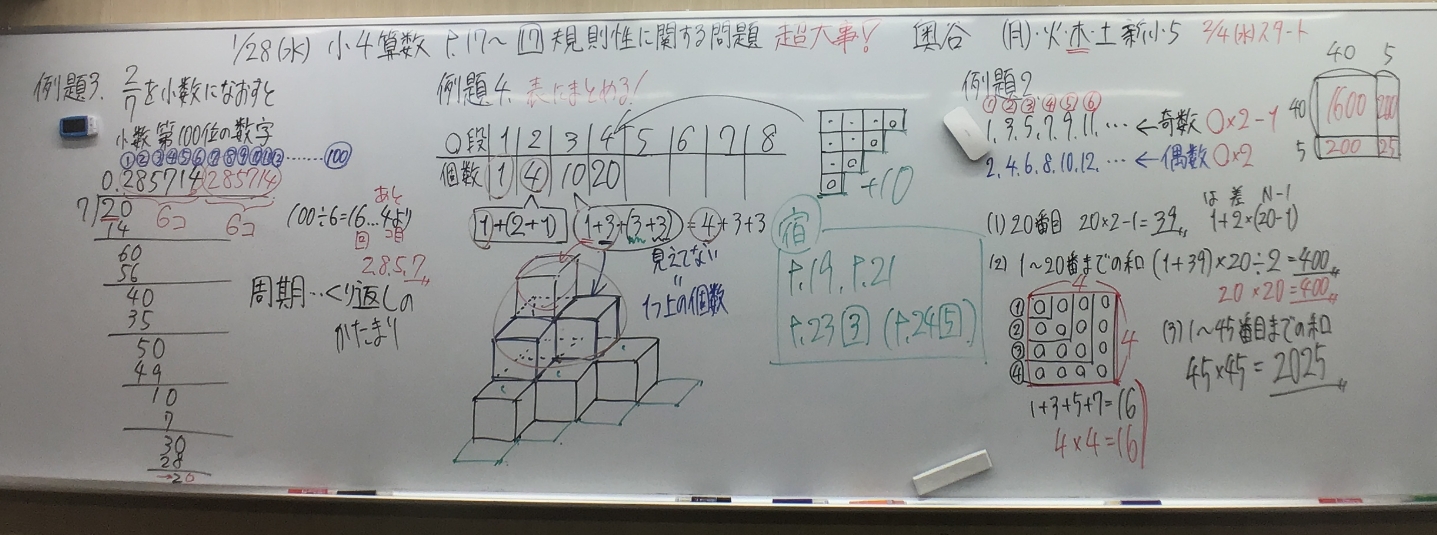 1/28(水) 小4算数 P.17〜 17 規則性に関する問題 超大事! 奥谷 (月)・火・木・土 新小5 2/4(水)スタート
例題3. 2/7を小数になおすと
小数第100位の数字
①②③④⑤⑥⑦⑧⑨⑩⑪⑫……⑩⓪
0.285714285714
6コ 6コ
7)20
14
60
56
40
35
50
49
10
7
30
28
→20
あと
100÷6=16…4より
回 コ目
2.8.5.7
周期…くり返しの
かたまり
例題4. 表にまとめる!
○段 1 2 3 4 5 6 7 8
個数 1 4 10 20
+10
1+(2+1) (1+3+(3+3)) = 4+3+3
見えてない
〃
1つ上の個数
宿
P.19, P.21
P.23 3 (P.24 5)
例題2
①②③④⑤⑥
1.3.5.7.9.11.… ←奇数 ○×2-1
2.4.6.8.10.12.… ←偶数 ○×2
40 5
40 1600 200
5 200 25
は 差 N-1
(1) 20番目 20×2-1=39 1+2×(20-1)
(2) 1〜20番までの和 (1+39)×20÷2=400
20×20=400
4
① ○○○○
② ○○○○
③ ○○○○
④ ○○○○
4
1+3+5+7=16
4×4=16
(3) 1〜45番目までの和
45×45=2025